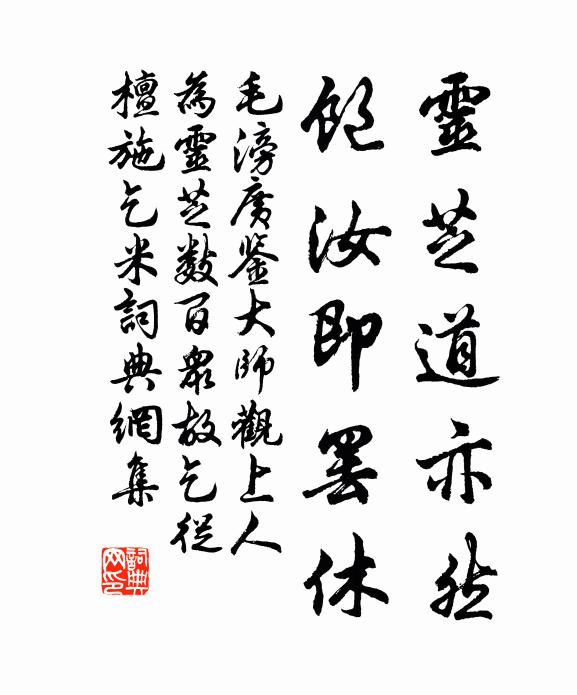 靈芝道亦然
飽汝即罢休
毛滂廣鉴大師觀上人
為靈芝數百衆故乞從
檀施乞米詞典網集
詞典
网印